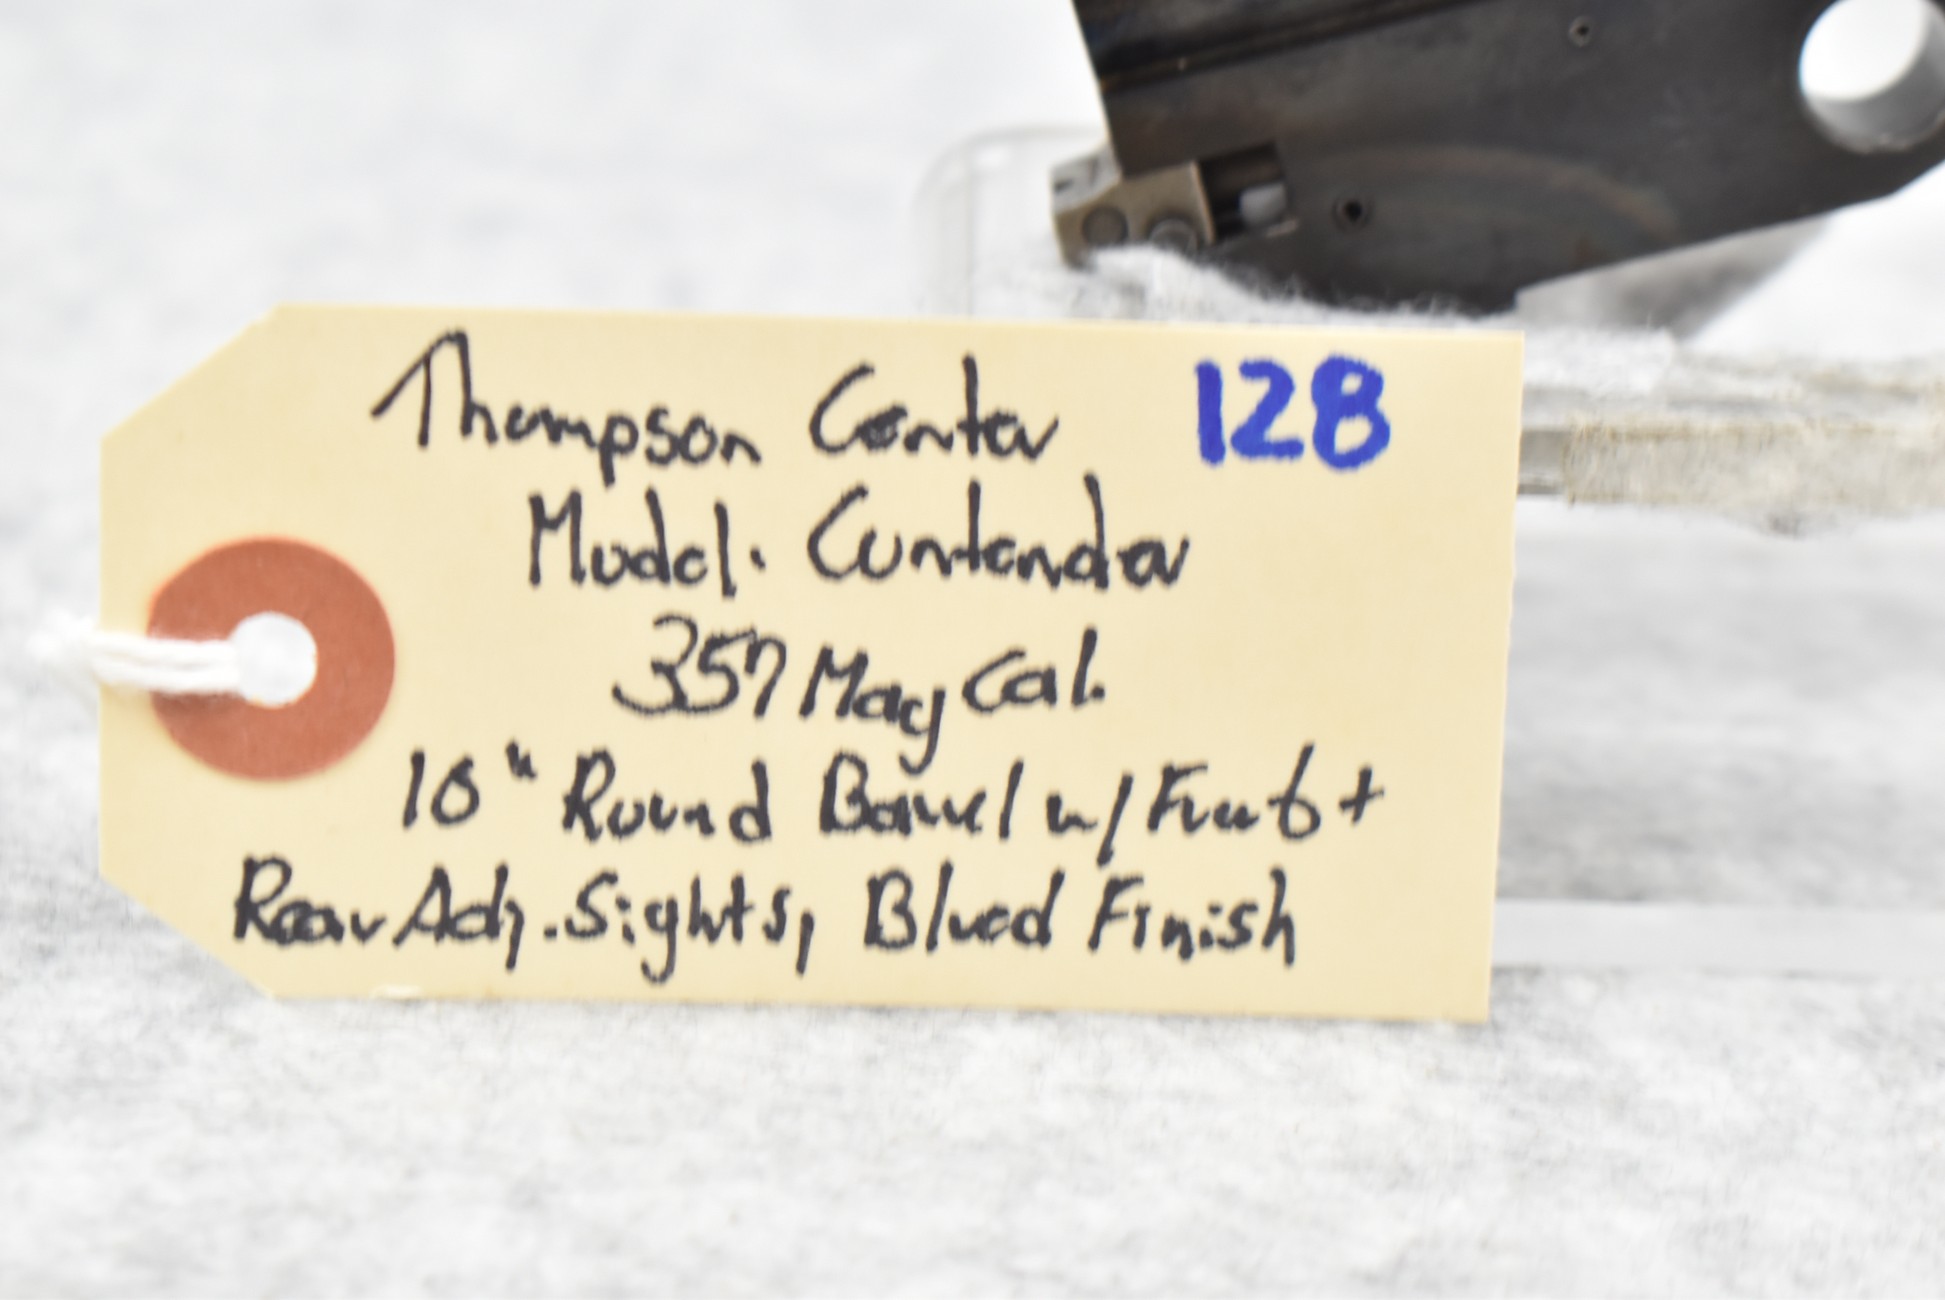 Thompson Center 128
Model: Contender
357 Mag Cal.
10" Round Barrel w/ Front +
Rear Adj. Sights, Blued Finish